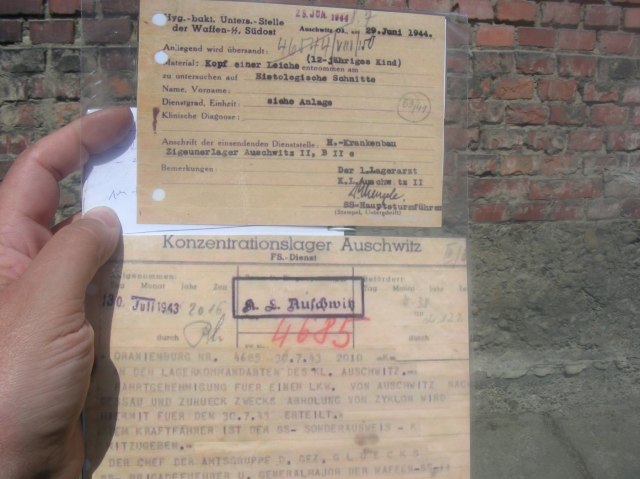 29. JUN. 1944
Hyg.-bakt. Unters.-Stelle
der Waffen-SS, Südost
Auschwitz OS., am 29.Juni 1944.
Anliegend wird übersandt:
Material: Kopf einer Leiche (12-jähriges Kind) entnommen am
zu untersuchen auf Histologische Schnitte
Name, Vorname:
Dienstgrad, Einheit: siehe Anlage
Klinische Diagnose:
Anschrift der einsendenden Dienststelle: H.-Krankenbau
Zigeunerlager Auschwitz II, B II e
Bemerkungen: Der 1.Lagerarzt
K.L.Auschwitz II
SS-Hauptsturmführer
(Stempel, Unterschrift)
Konzentrationslager Auschwitz
FS.-Dienst
Tag Monat Jahr Zeit
30. Juli 1943 2016
durch
K. L. Auschwitz
4685
durch
ORANIENBURG NR. 4685 30.7.43 2010
AN DEN LAGERKOMMANDANTEN DES KL. AUSCHWITZ.-
FAHRTGENEHMIGUNG FUER EINEN LKW. VON AUSCHWITZ NACH
DESSAU UND ZURUECK ZWECKS ABHOLUNG VON ZYKLON WIRD
HIERMIT FUER DEN 30.7.43 ERTEILT.-
DEM KRAFTFAHRER IST DER SS- SONDERAUSWEIS - K
MITZUGEBEN.-
DER CHEF DER AMTSGRUPPE D, GEZ. GLUECKS
SS- BRIGADEFUEHRER U. GENERALMAJOR DER WAFFEN-SS